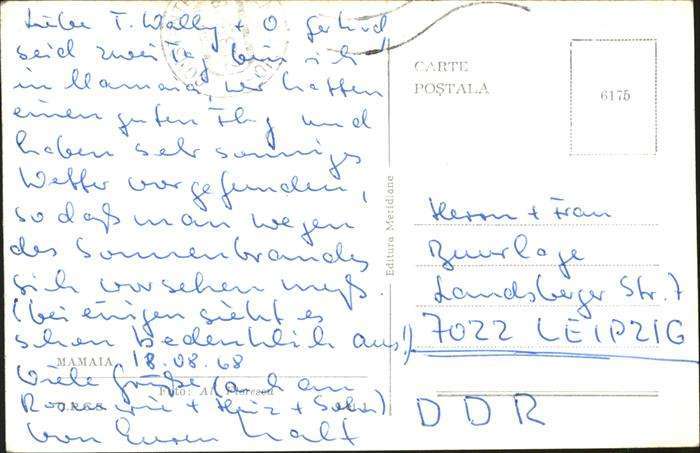 Liebe T. Wally + O
seid zwei Tag bin ich
in Mamaia, wir hatten
einen guten Flug und
haben sehr sonniges
Wetter vorgefunden,
so daß man wegen
des Sonnenbrandes
sich vorsehen muß.
(bei einigen sieht es
schon bedenklich aus!)
MAMAIA 18.08.68
Viele Grüße (auch an
+ Heinz + Sohn)
von Euren
Foto: A.
Editura Meridiane
CARTE
POȘTALA
6175
Herrn + Frau
Beurlage
Landsberger Str. 7
7022 LEIPZIG
DDR